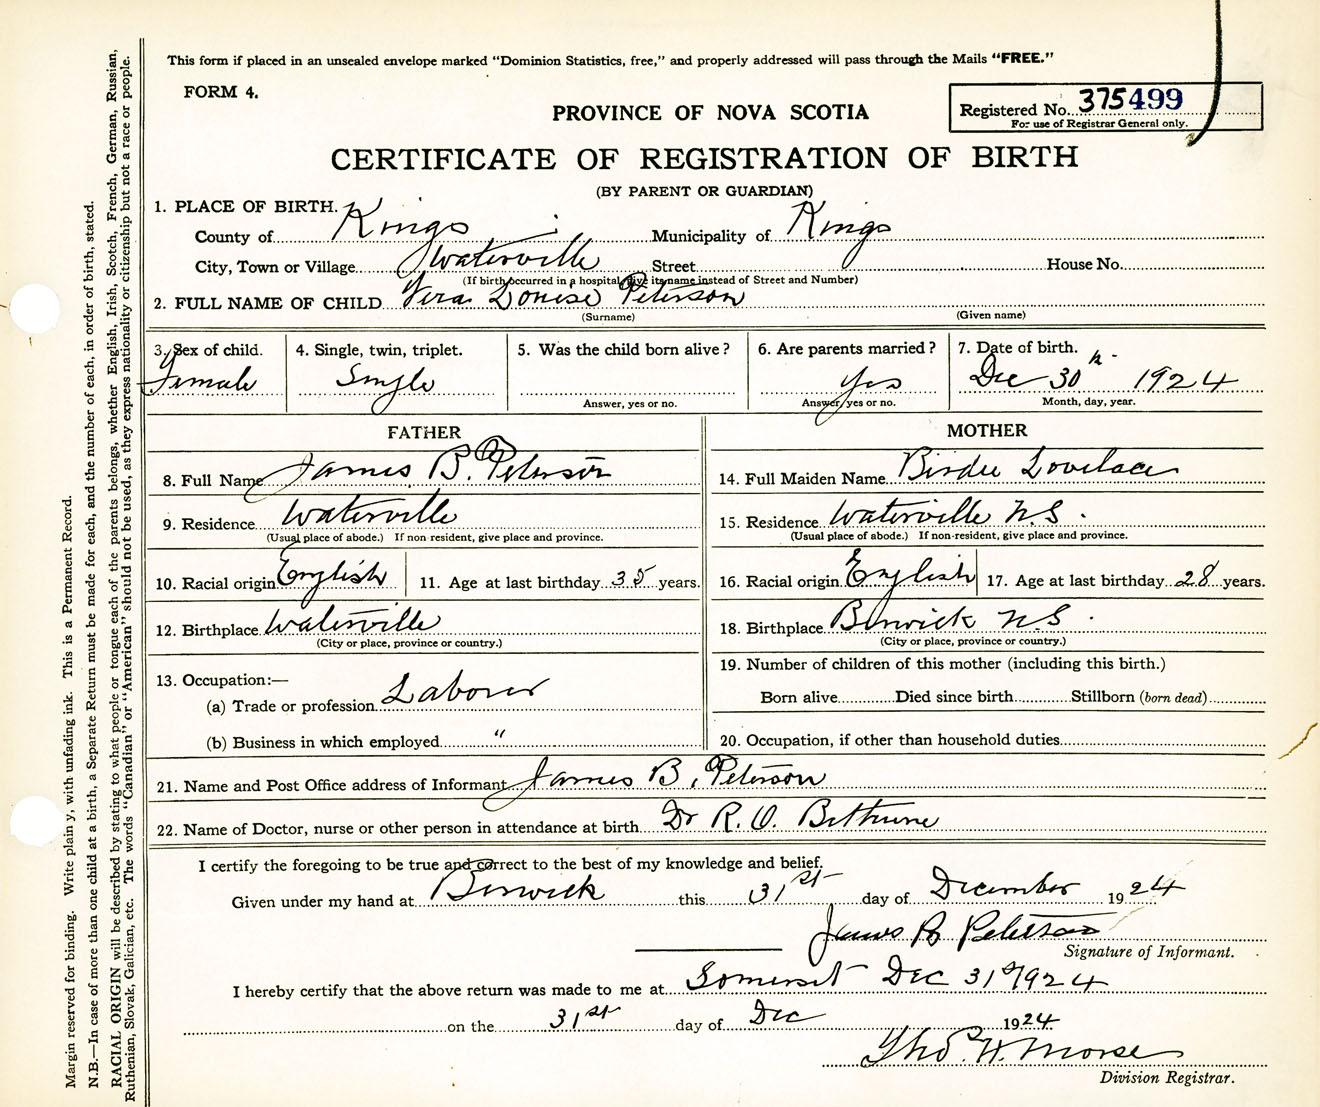 This form if placed in an unsealed envelope marked "Dominion Statistics, free," and properly addressed will pass through the Mails "FREE."
FORM 4.
PROVINCE OF NOVA SCOTIA
Registered No. 375499
For use of Registrar General only.
CERTIFICATE OF REGISTRATION OF BIRTH
(BY PARENT OR GUARDIAN)
1. PLACE OF BIRTH.
County of Kings Municipality of Kings
City, Town or Village Waterville Street House No.
(If birth occurred in a hospital, give its name instead of Street and Number)
2. FULL NAME OF CHILD Vera Louise Peterson
(Surname) (Given name)
3. Sex of child. 4. Single, twin, triplet. 5. Was the child born alive? 6. Are parents married? 7. Date of birth.
Female Single Yes Dec 30th 1924
Answer, yes or no. Answer, yes or no. Month, day, year.
FATHER MOTHER
8. Full Name James B. Peterson 14. Full Maiden Name Birdie Lovelace
9. Residence Waterville 15. Residence Waterville N.S.
(Usual place of abode.) If non-resident, give place and province. (Usual place of abode.) If non-resident, give place and province.
10. Racial origin English 11. Age at last birthday 35 years. 16. Racial origin English 17. Age at last birthday 28 years.
12. Birthplace Waterville 18. Birthplace Berwick N.S.
(City or place, province or country.) (City or place, province or country.)
13. Occupation:— 19. Number of children of this mother (including this birth.)
(a) Trade or profession Laborer Born alive Died since birth Stillborn (born dead)
(b) Business in which employed " 20. Occupation, if other than household duties
21. Name and Post Office address of Informant James B. Peterson
22. Name of Doctor, nurse or other person in attendance at birth Dr R. O. Bethune
I certify the foregoing to be true and correct to the best of my knowledge and belief.
Given under my hand at Berwick this 31st day of December 1924
James B Peterson
Signature of Informant.
I hereby certify that the above return was made to me at Somerset Dec 31st 1924
on the 31st day of Dec 1924
Thos. H. Morse
Division Registrar.
Margin reserved for binding. Write plainy, with unfading ink. This is a Permanent Record.
N.B.—In case of more than one child at a birth, a Separate Return must be made for each, and the number of each, in order of birth, stated.
RACIAL ORIGIN will be described by stating to what people or tongue each of the parents belongs, whether English, Irish, Scotch, French, German, Russian,
Ruthenian, Slovak, Galician, etc. The words "Canadian" or "American" should not be used, as they express nationality or citizenship but not a race or people.